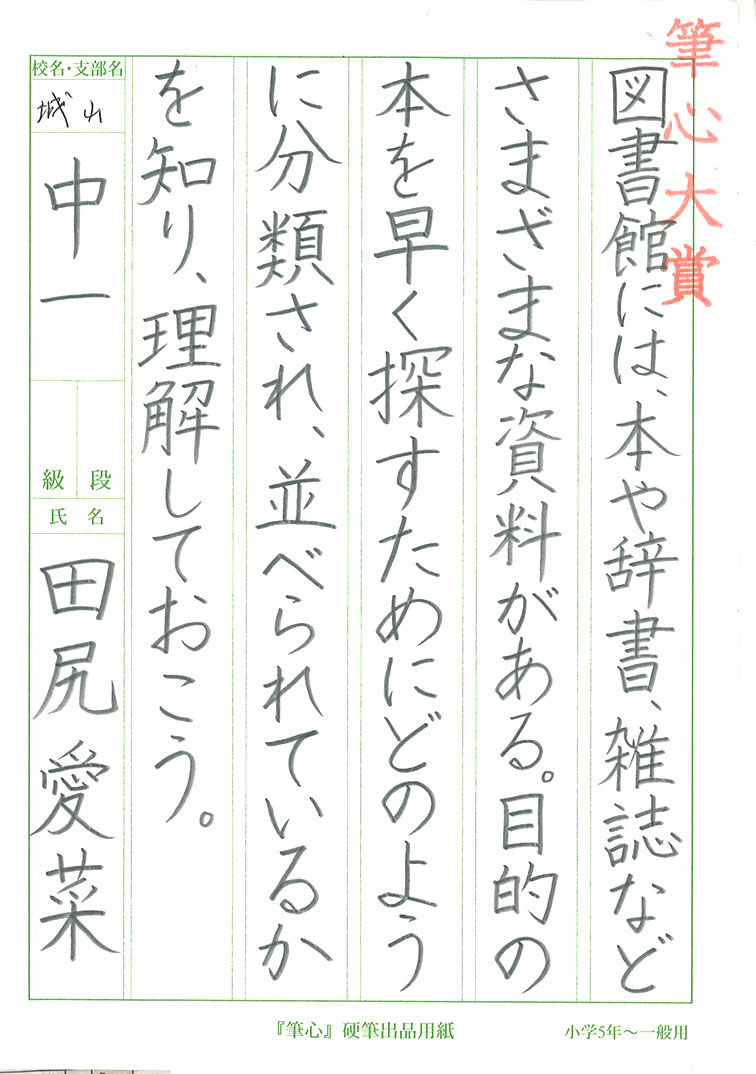 筆心大賞
図書館には、本や辞書、雑誌など
さまざまな資料がある。目的の
本を早く探すためにどのよう
に分類され、並べられているか
を知り、理解しておこう。
校名・支部名
城山
中一
段
級
氏名
田尻愛菜
『筆心』硬筆出品用紙
小学5年～一般用